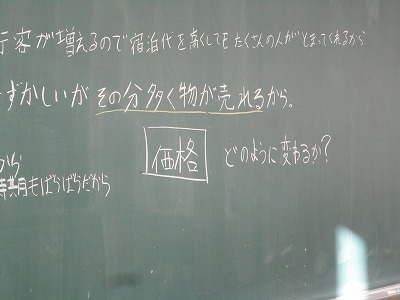 行客が増えるので宿泊代を高くしてもたくさんの人がとまってくれるから
ずかしいがその分多く物が売れるから。
価格 どのように変わるか?
から
時期もばらばらだから